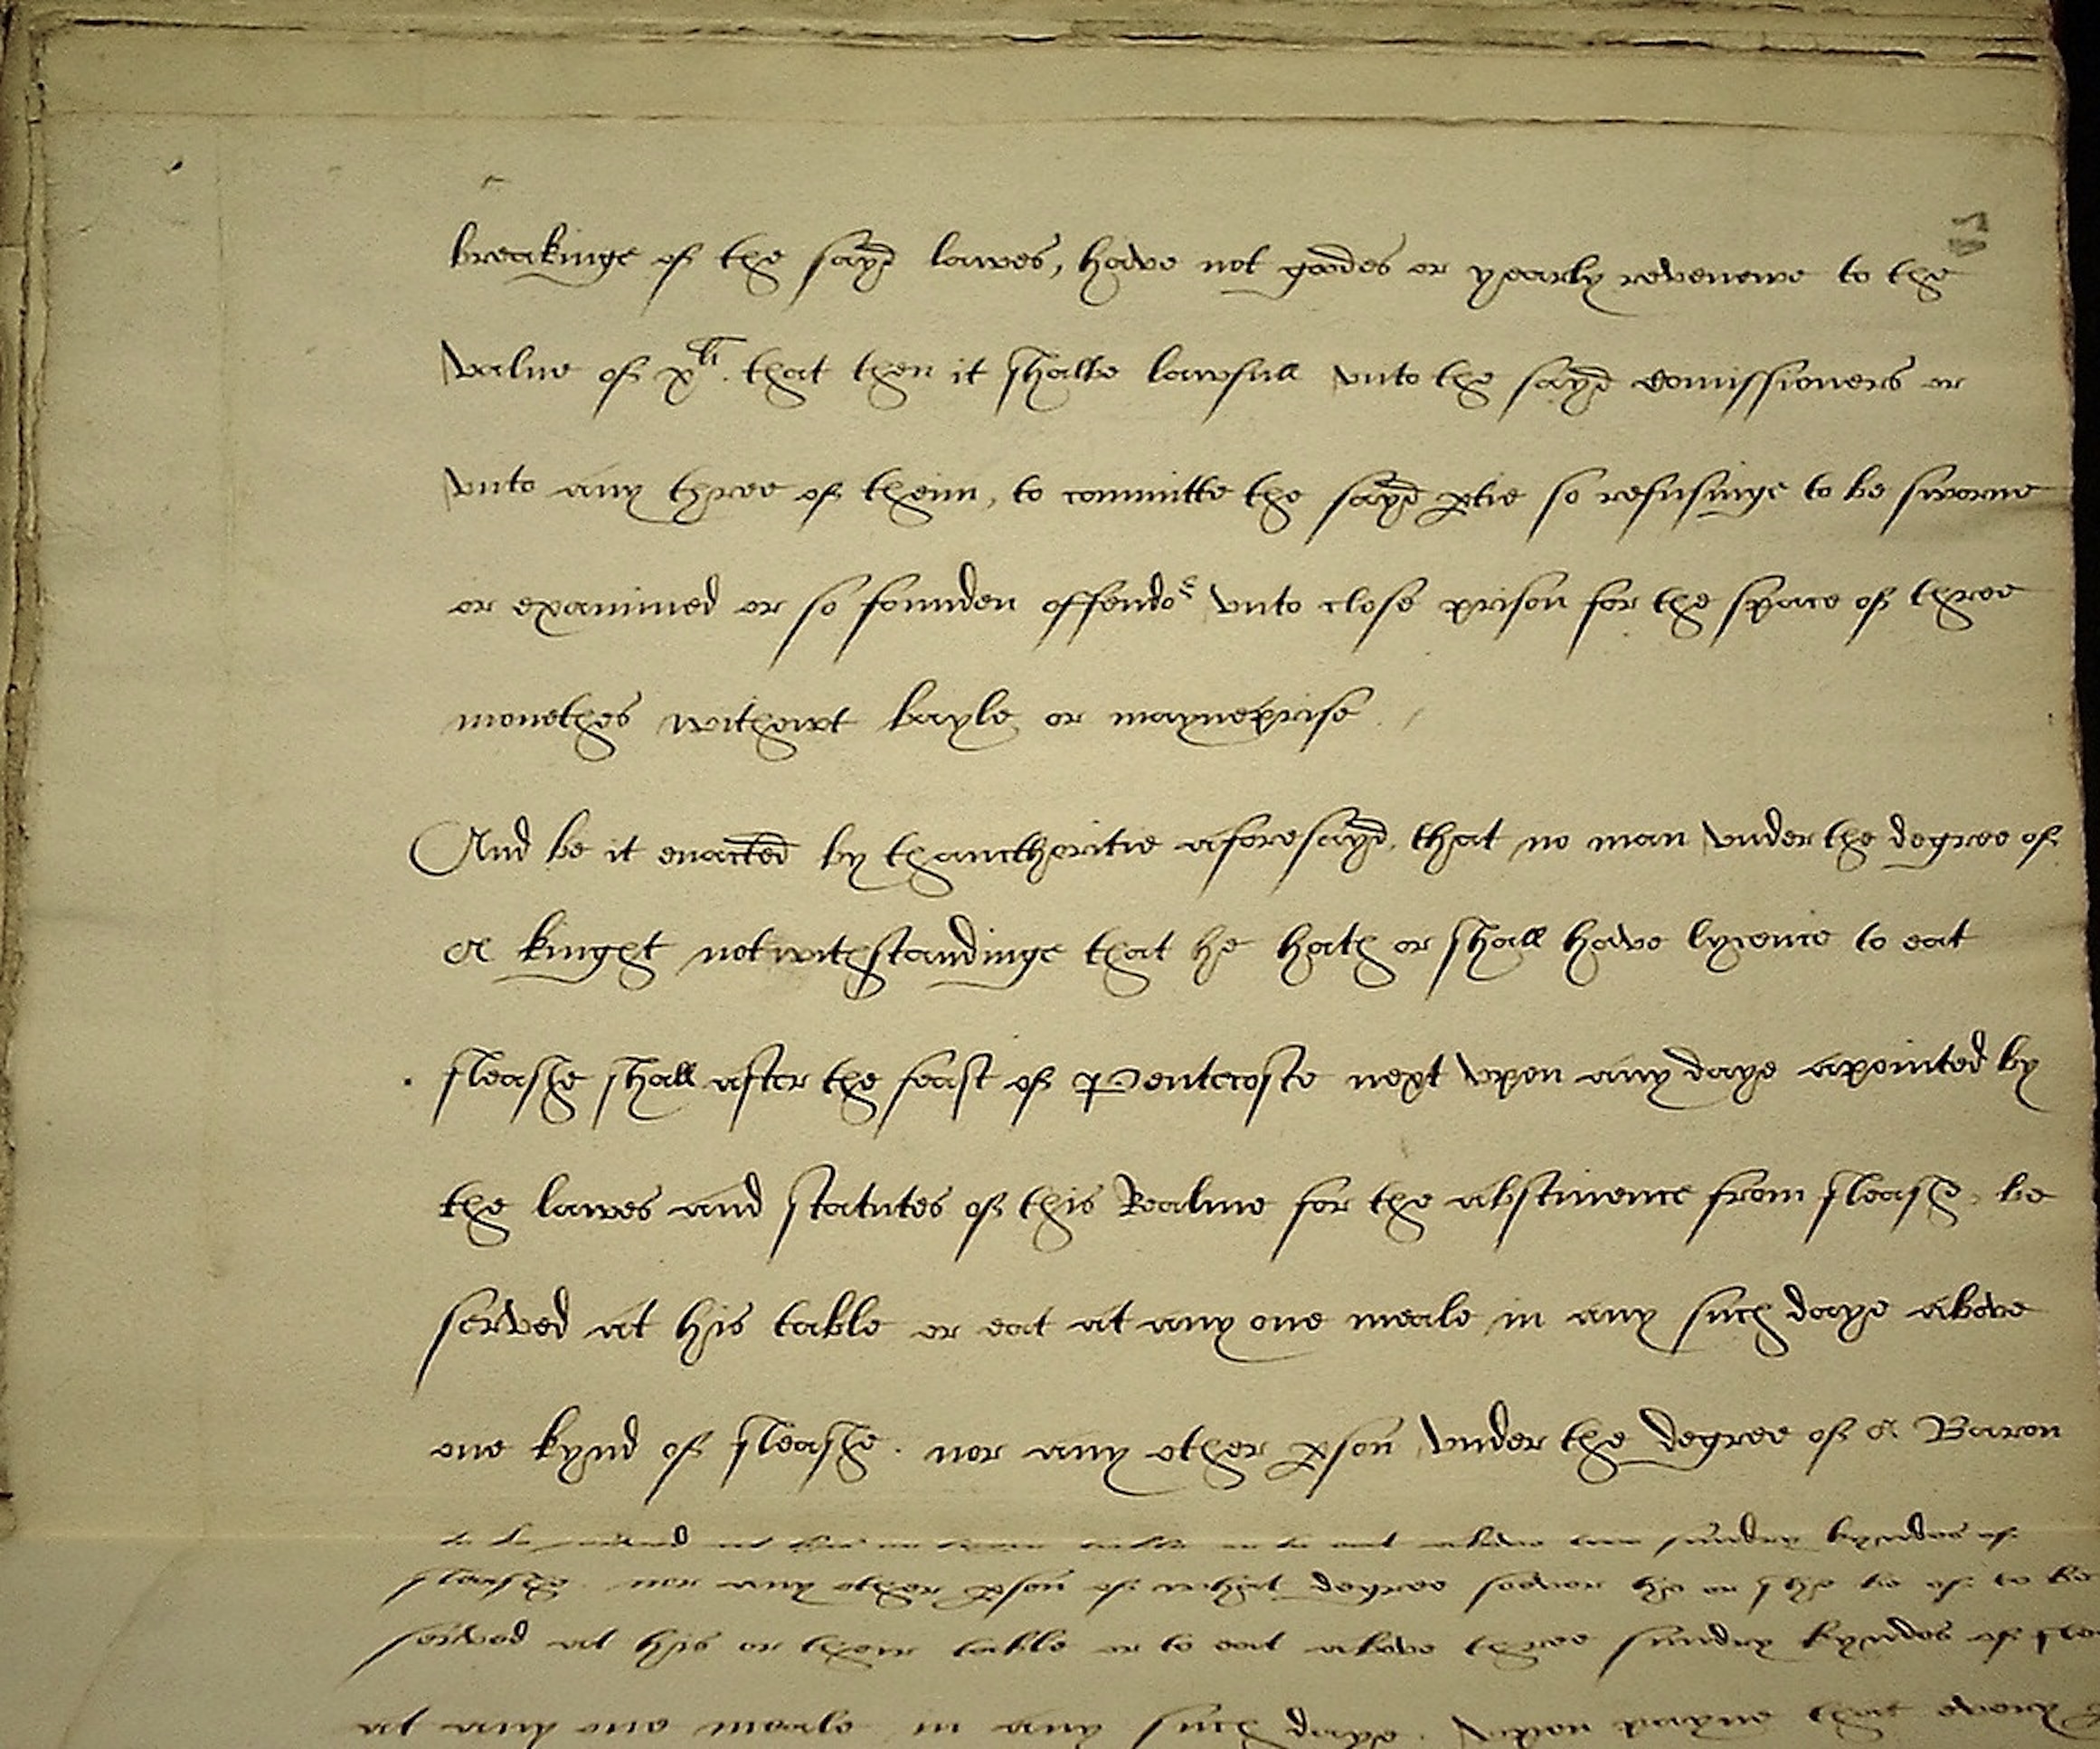 breakinge of the sayd lawes, have not goodes or yearly revenewe to the
value of xli. that then it shalbe lawfull vnto the sayd comissioners or
vnto any three of theim, to committe the sayd ptie so refusinge to be sworne
or examined or so founden offendor vnto close prison for the space of three
monethes withowt bayle or mayneprise.
And be it enacted by thaucthoritie aforesayd, that no man vnder the degree of
a kinght notwithstandinge that he hath or shall have lycence to eat
fleashe shall after the feast of Pentecoste next vpon any daye apointed by
the lawes and statutes of this Realme for the abstinence from fleashe, be
served at his table or eat at any one meale in any such daye above
one kynd of fleashe. nor any other pson vnder the degree of a Baron
to be served at his or sundry kyndes of
fleashe. nor any other pson of what degree soever he or she be of to be
served at his or their table or to eat above three sundry kyndes of
at any one meale in any such daye. Vpon payne that every